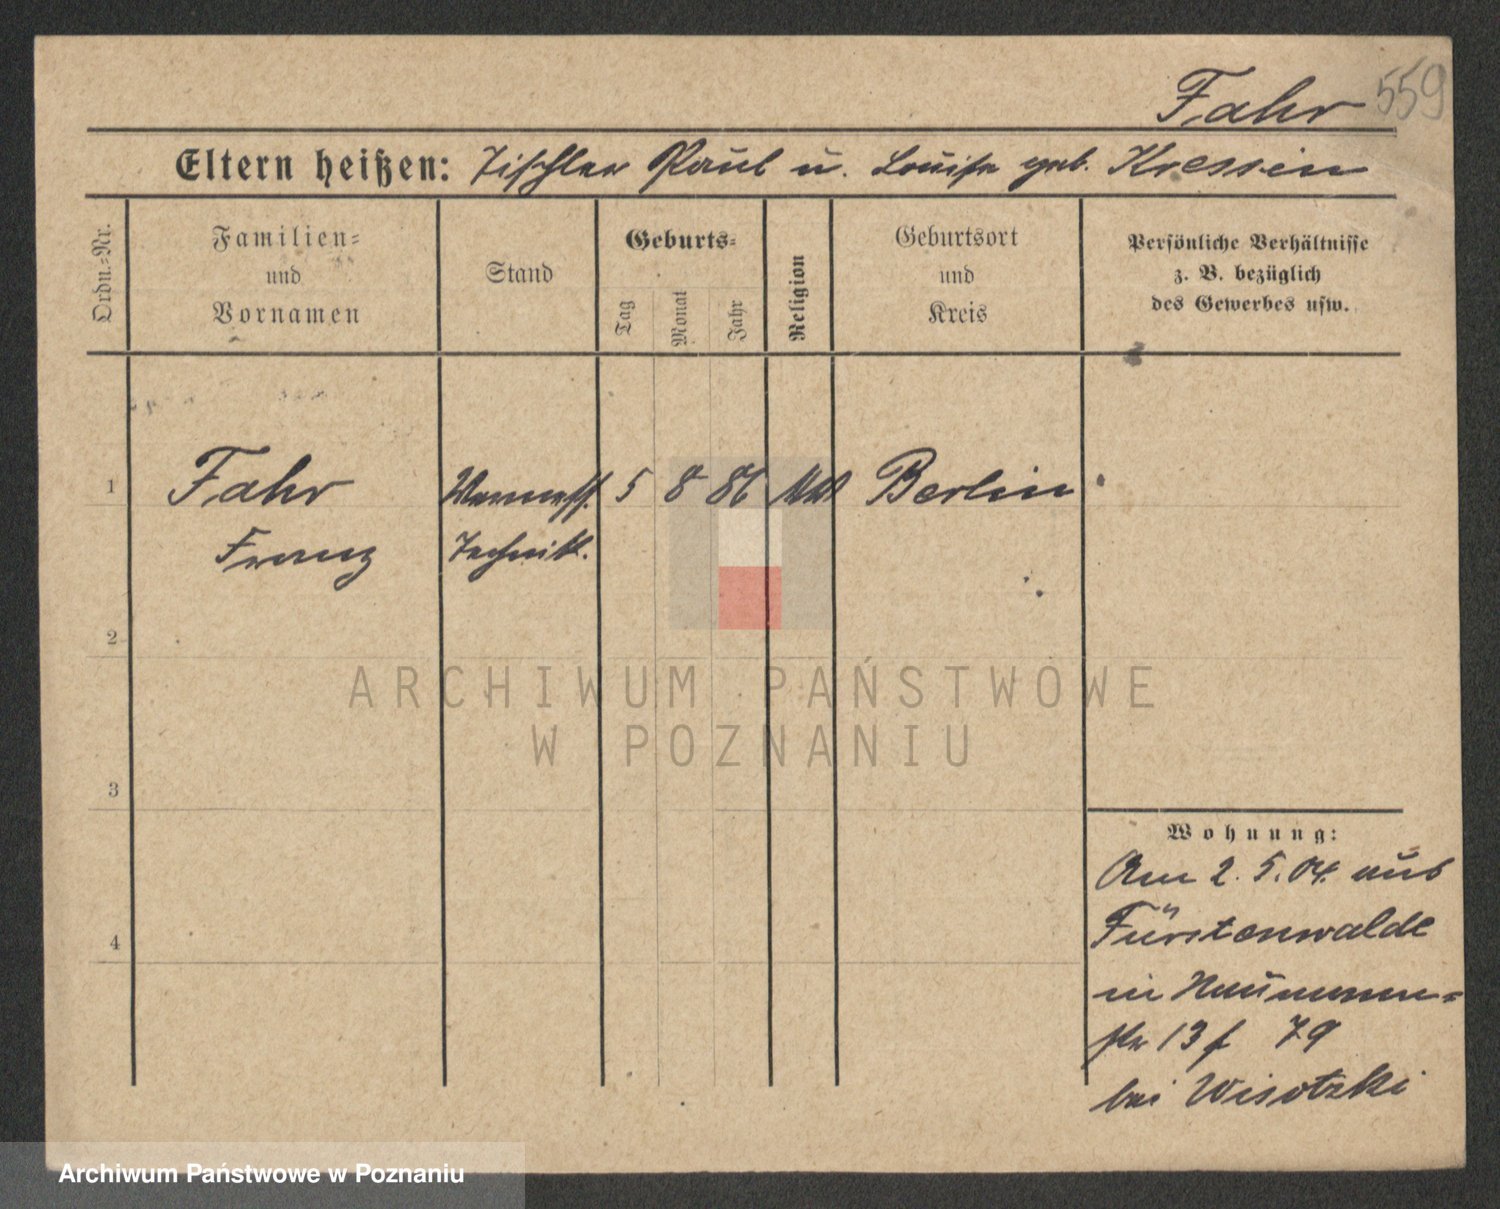 Fahr 559
Eltern heißen: Tischler Paul u. Louise geb. Kressin
Ordn.-Nr.
Familien-
und
Vornamen
Stand
Geburts-
Tag
Monat
Jahr
Religion
Geburtsort
und
Kreis
Persönliche Verhältnisse
z. B. bezüglich
des Gewerbes usw.
1 Fahr 5 8 86 Berlin
Franz Technik.
2
3
4
Wohnung:
Am 2. 5. 04. aus
Fürstenwalde
in Naumann-
str 13 f 79
bei Wisotzki
ARCHIWUM PAŃSTWOWE
W POZNANIU
Archiwum Państwowe w Poznaniu